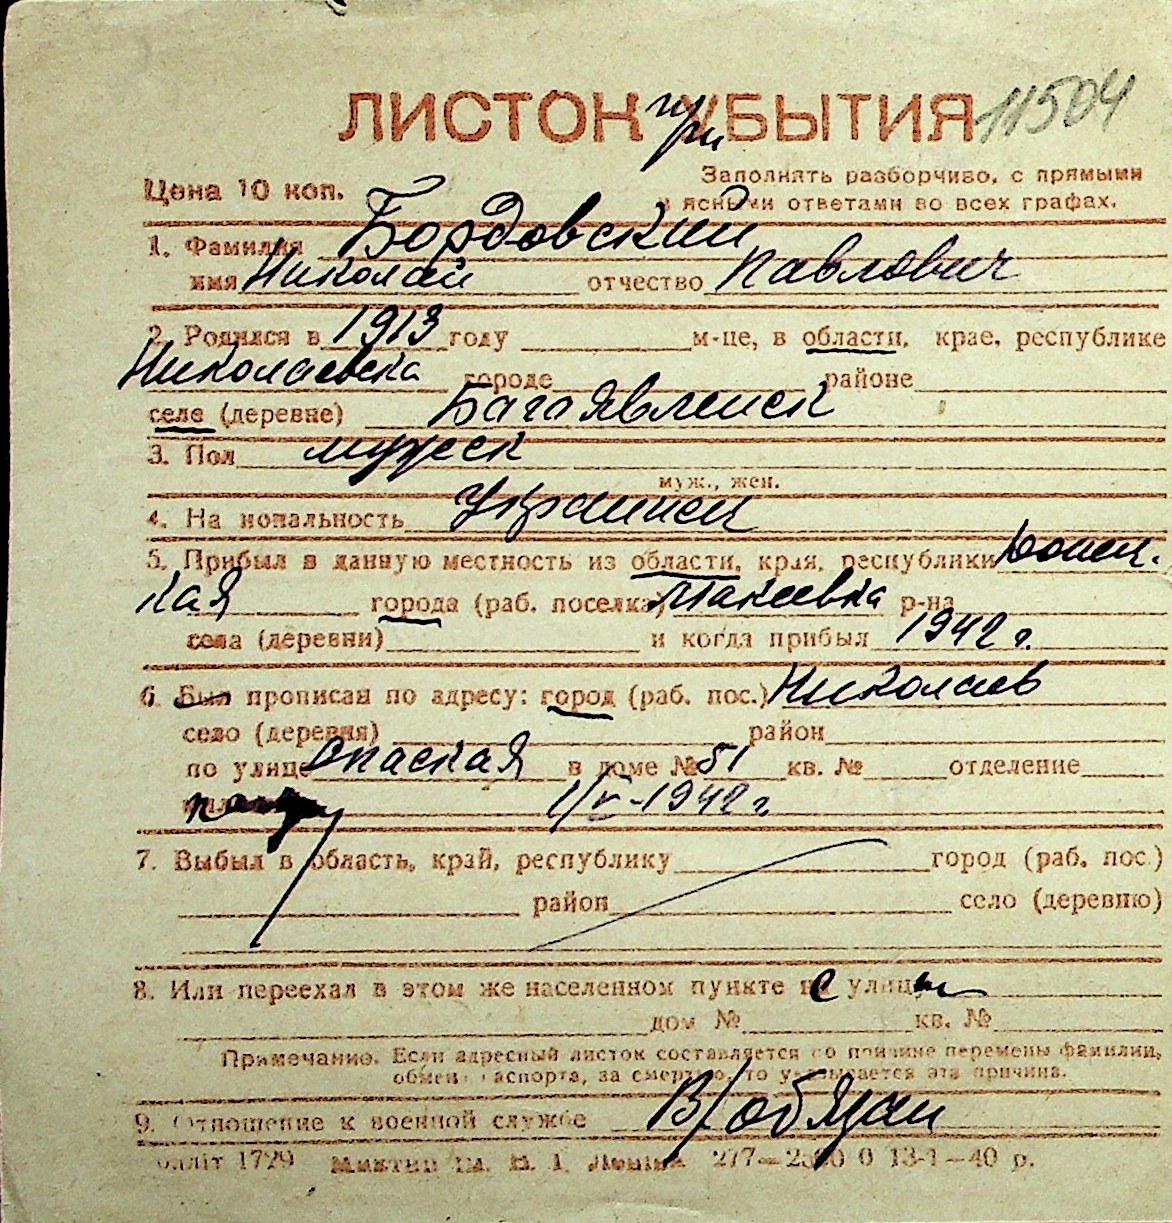 ЛИСТОК при УБЫТИЯ 11504
Цена 10 коп.
Заполнять разборчиво, с прямыми
и ясными ответами во всех графах.
1. Фамилия Бордовский
имя Николай отчество Павлович
2. Родился в 1913 году м-це, в области, крае, республике
Николаевска городе районе
селе (деревне) Багоявленск
3. Пол мужск
муж., жен.
4. На иональность Украинец
5. Прибыл в данную местность из области, края, республики Донец-
кая города (раб. поселка) Макеевка р-на
села (деревни) и когда прибыл 1942 г.
6. Был прописан по адресу: город (раб. пос.) Николаев
село (деревня) район
по улице Спаская в доме № 51 кв. № отделение
1/V-1942 г
7. Выбыл в область, край, республику город (раб. пос.)
район село (деревню)
8. Или переехал в этом же населенном пункте с улицы
дом № кв. №
Примечание. Если адресный листок составляется по причине перемены фамилии,
обмена паспорта, за смертью, то указывается эта причина.
9. Отношение к военной службе В/обязан
1729 277— 0 13-1—40 р.